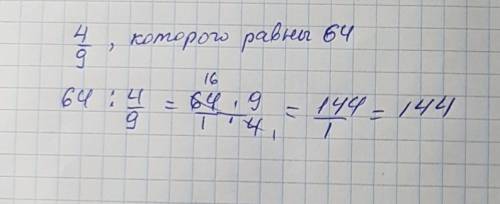 4/9, которого равны 64
64 : 4/9 = (64 16 · 9)/(1 · 4 1) = 144/1 = 144